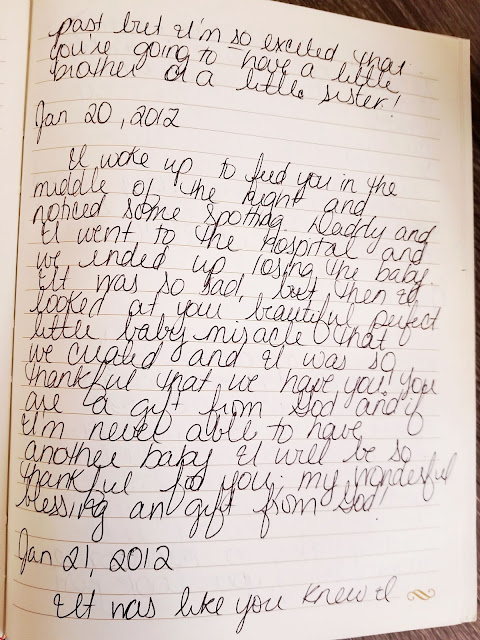 past but I'm so excited that
you're going to have a little
brother or a little sister!
Jan 20, 2012
I woke up to feed you in the
middle of the night and
noticed some spotting. Daddy and
I went to the hospital and
we ended up losing the baby.
It was so sad, but then I
looked at you beautiful perfect
little baby miracle that
we created and I was so
thankful that we have you! You
are a gift from God and if
I'm never able to have
another baby I will be so
thankful for you. my wonderful
blessing an gift from God!
Jan 21, 2012
It was like you knew I